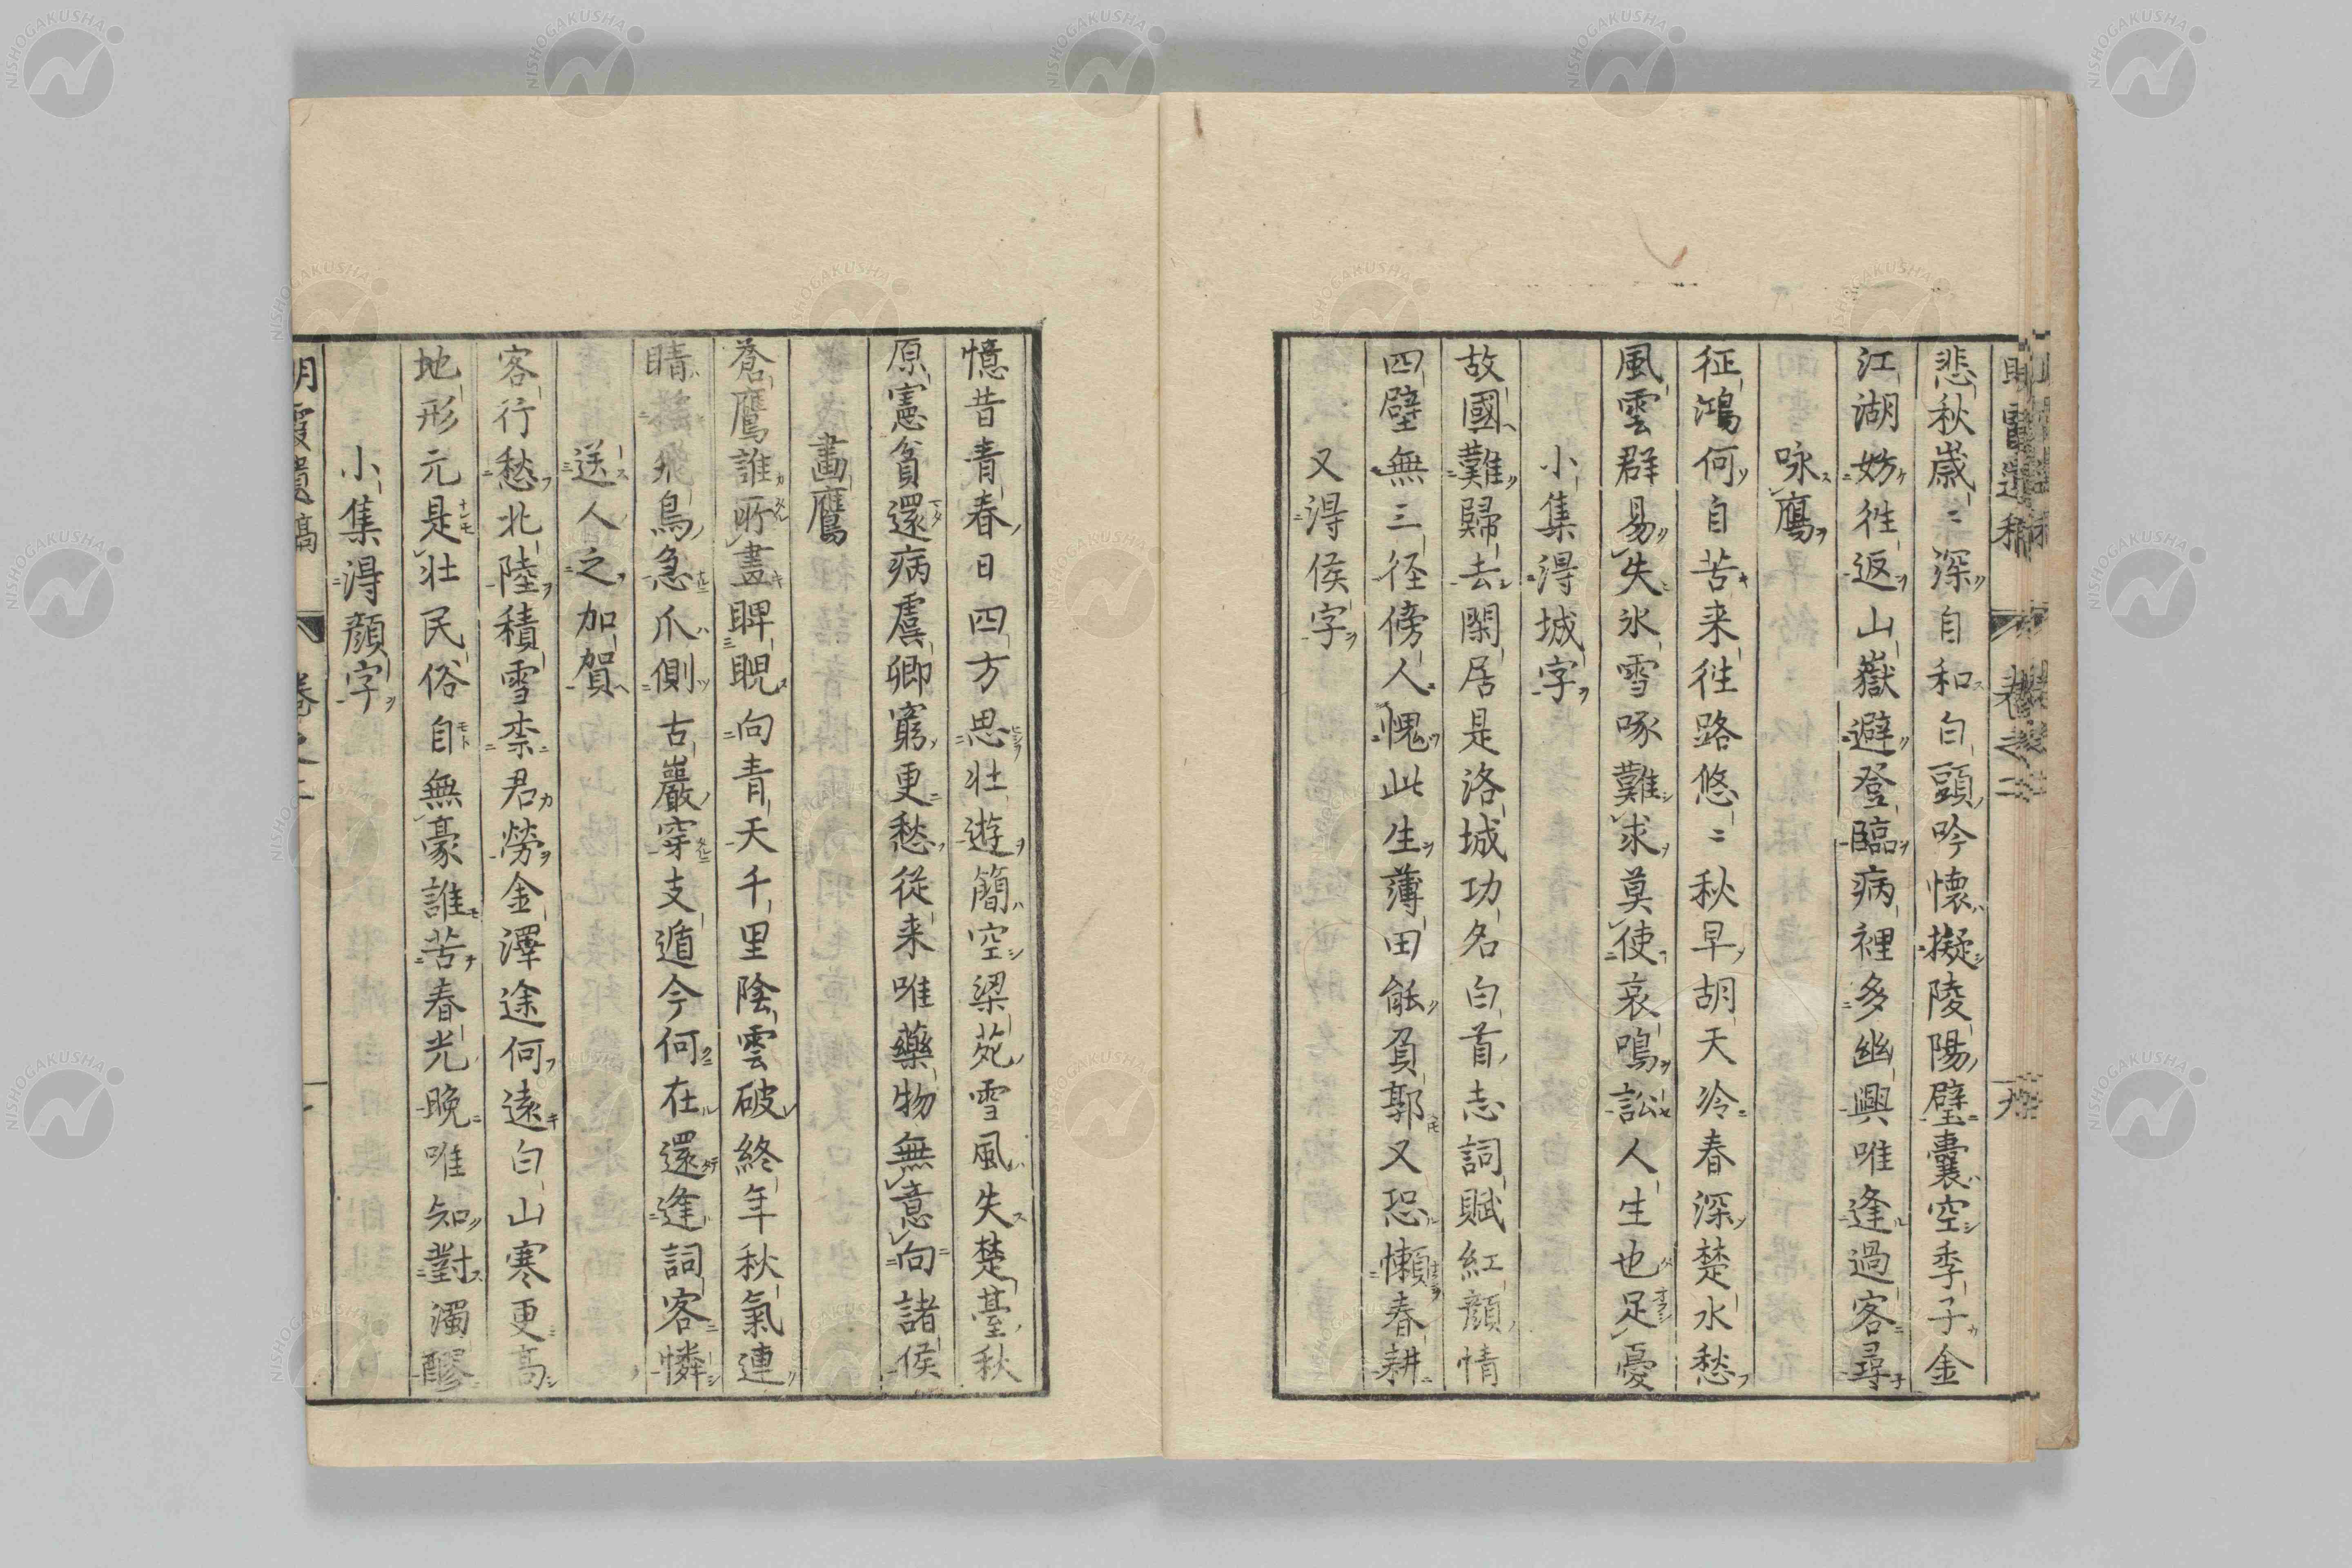 悲秋歳〻深自和白頭吟懷擬陵陽璧囊空季子金
江湖妨徃返山嶽避登臨病裡多幽興唯逢過客尋
咏鴈
征鴻何自苦来徃路悠〻秋早胡天冷春深楚水愁
風雲群易失氷雪啄難求莫使哀鳴訟人生也足憂
小集得城字
故國難歸去閑居是洛城功名白首志詞賦紅顔情
四壁無三径傍人愧此生薄田能負郭又恐懶春耕
又得侯字
憶昔青春日四方思壮遊簡空梁苑雪風失楚臺秋
原憲貧還病虞卿窮更愁従来唯藥物無意向諸侯
畫鷹
蒼鷹誰所畫睥睨向青天千里陰雲破終年秋氣連
睛飛鳥急爪側古巖穿支遁今何在還逢詞客憐
送人之加賀
客行愁北陸積雪柰君勞金澤途何遠白山寒更高
地形元是壮民俗自無豪誰苦春光晩唯知對濁醪
小集得顔字
NISHOGAKUSHA